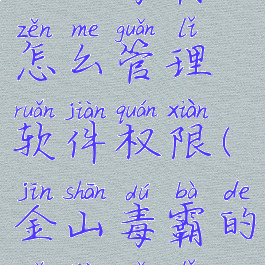 zěn me guǎn lǐ
怎么管理
ruǎn jiàn quán xiàn
软件权限(
jīn shān dú bà de
金山毒霸的